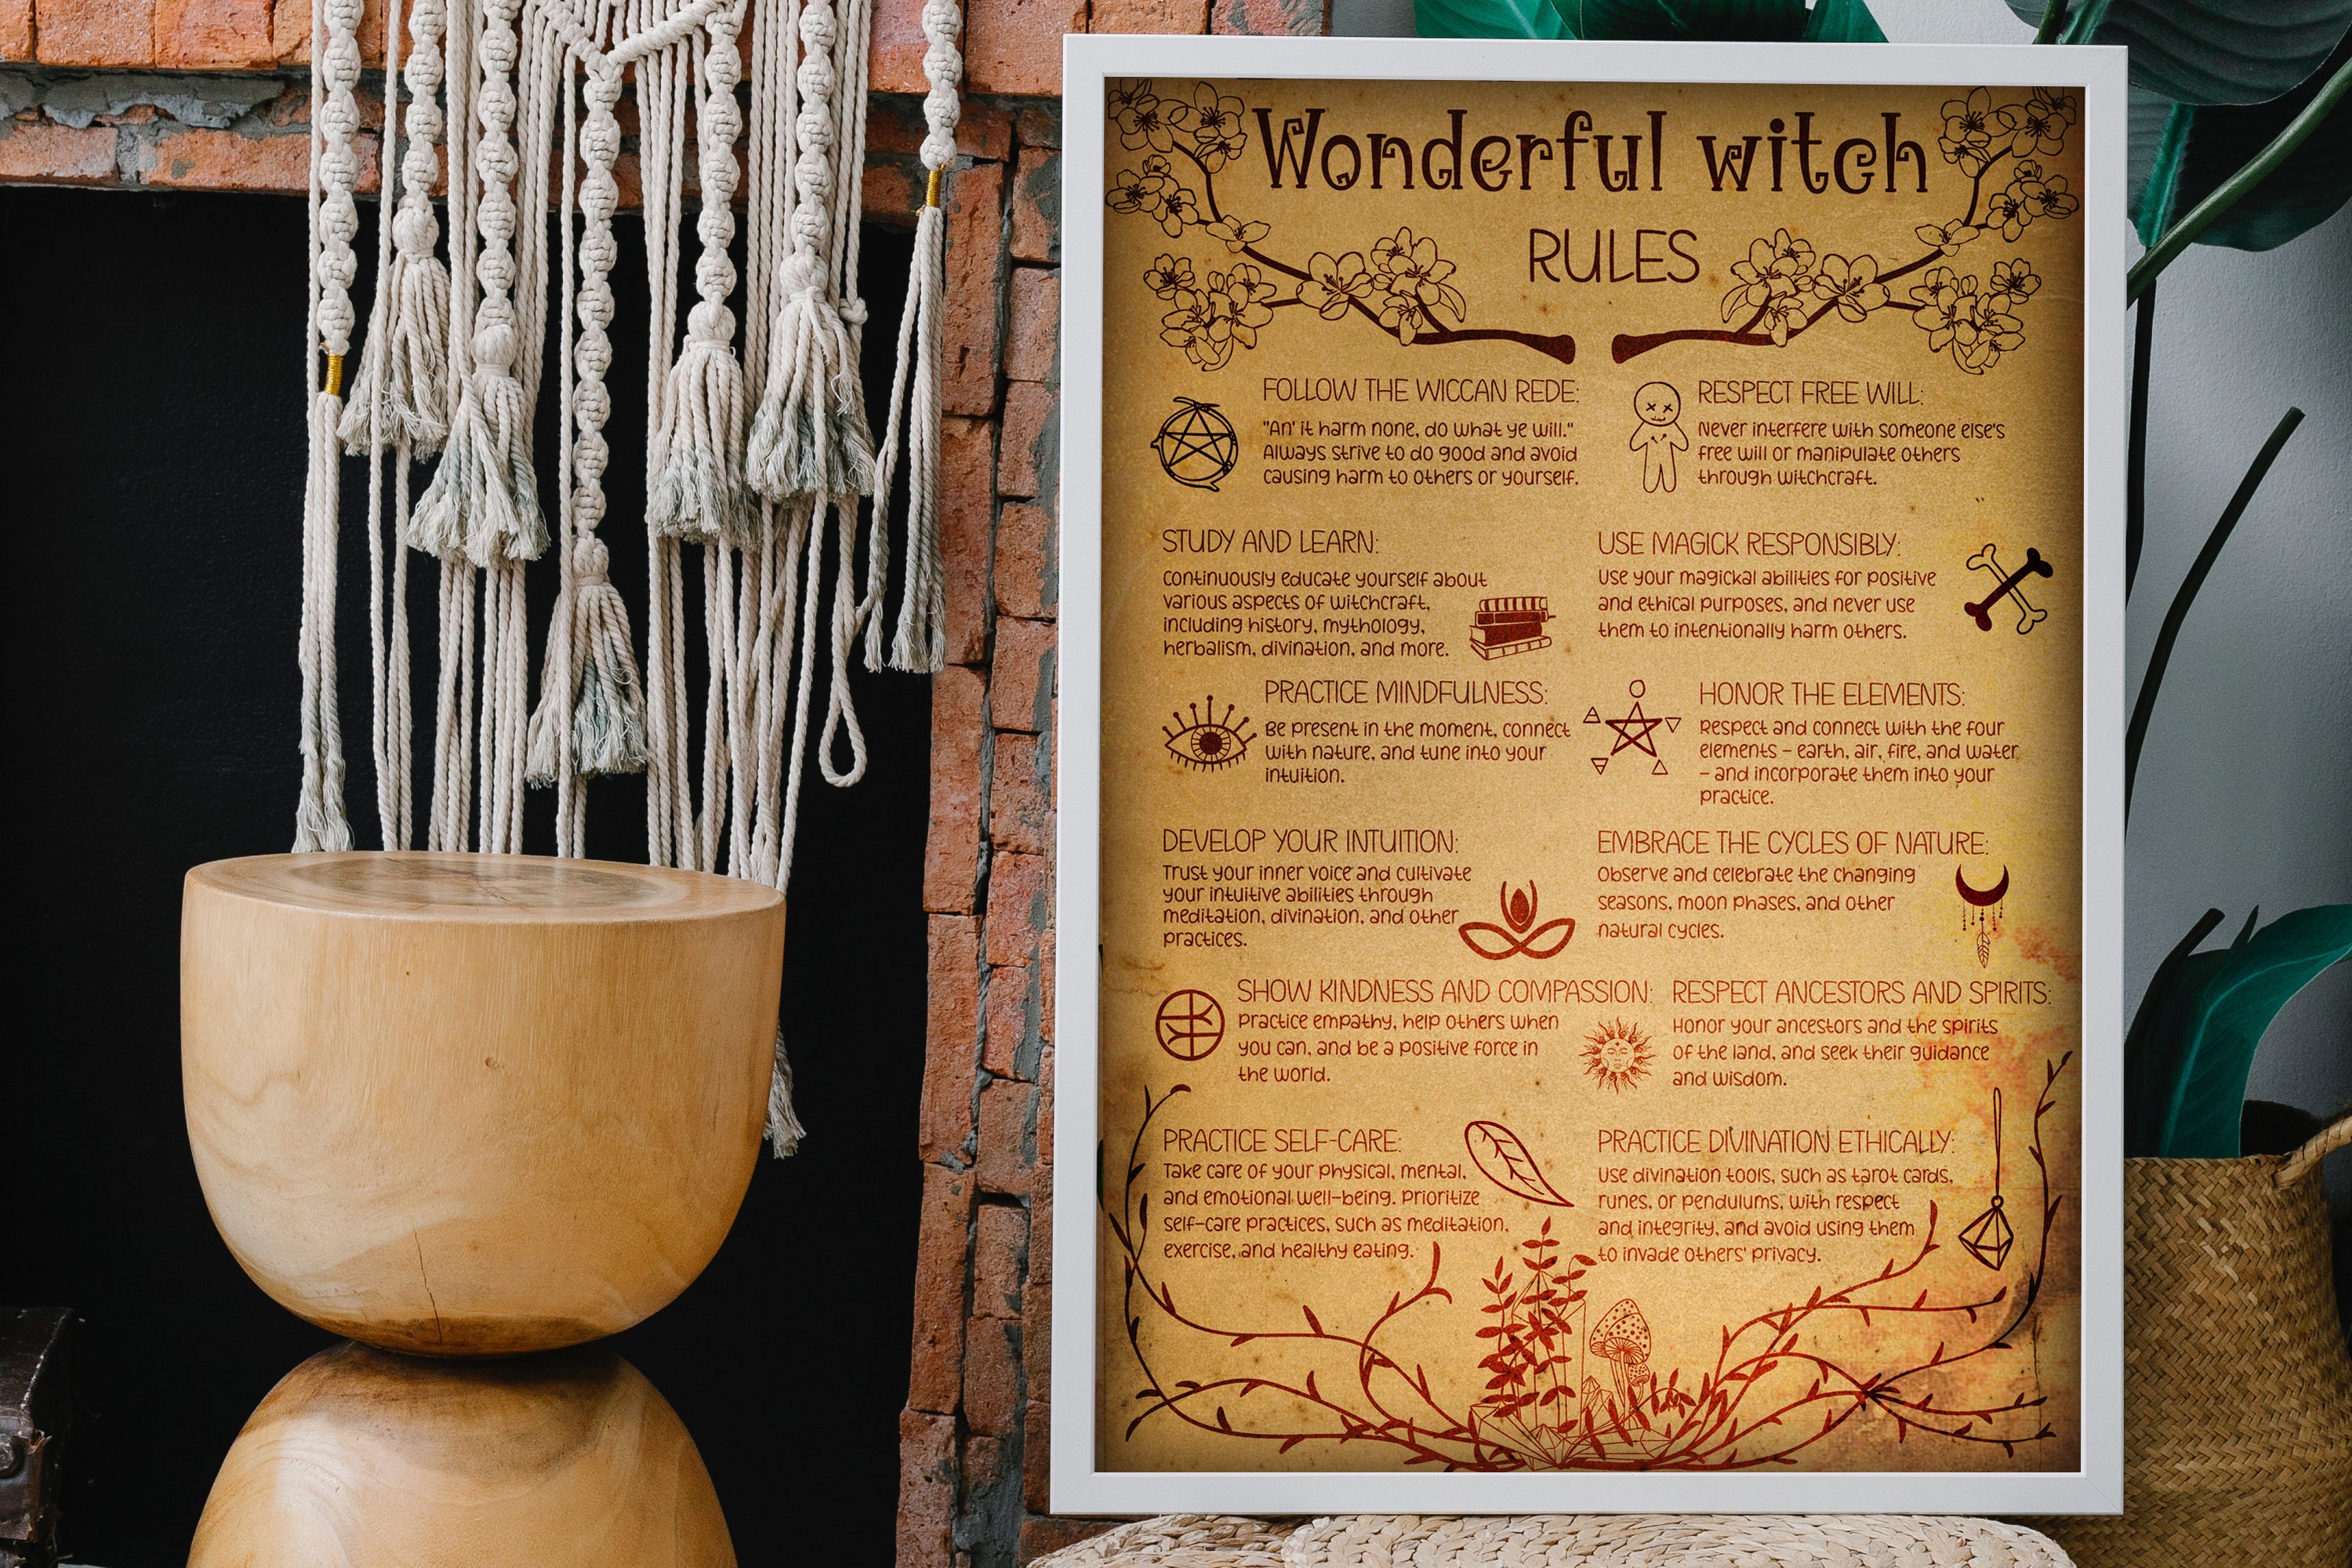 Wonderful witch
RULES
FOLLOW THE WICCAN REDE:
"An' it harm none, do what ye will."
Always strive to do good and avoid
causing harm to others or yourself.
RESPECT FREE WILL:
Never interfere with someone else's
free will or manipulate others
through witchcraft.
STUDY AND LEARN:
Continuously educate yourself about
various aspects of witchcraft,
including history, mythology,
herbalism, divination, and more.
USE MAGICK RESPONSIBLY:
Use your magickal abilities for positive
and ethical purposes, and never use
them to intentionally harm others.
PRACTICE MINDFULNESS:
Be present in the moment, connect
with nature, and tune into your
intuition.
HONOR THE ELEMENTS:
Respect and connect with the four
elements – earth, air, fire, and water
– and incorporate them into your
practice.
DEVELOP YOUR INTUITION:
Trust your inner voice and cultivate
your intuitive abilities through
meditation, divination, and other
practices.
EMBRACE THE CYCLES OF NATURE:
Observe and celebrate the changing
seasons, moon phases, and other
natural cycles.
SHOW KINDNESS AND COMPASSION:
Practice empathy, help others when
you can, and be a positive force in
the world.
RESPECT ANCESTORS AND SPIRITS:
Honor your ancestors and the spirits
of the land, and seek their guidance
and wisdom.
PRACTICE SELF-CARE:
Take care of your physical, mental,
and emotional well-being. Prioritize
self-care practices, such as meditation,
exercise, and healthy eating.
PRACTICE DIVINATION ETHICALLY:
Use divination tools, such as tarot cards,
runes, or pendulums, with respect
and integrity, and avoid using them
to invade others' privacy.